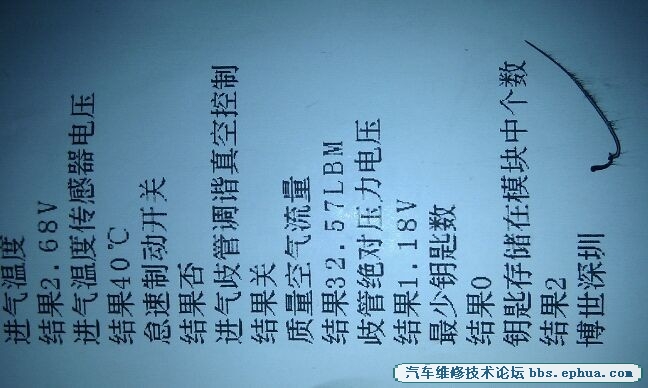 进气温度
结果2.68V
进气温度传感器电压
结果40℃
怠速制动开关
结果否
进气歧管调谐真空控制
结果关
质量空气流量
结果32.57LBM
歧管绝对压力电压
结果1.18V
最少钥匙数
结果0
钥匙存储在模块中个数
结果2
博世深圳
汽车维修技术论坛 bbs.ephua.com